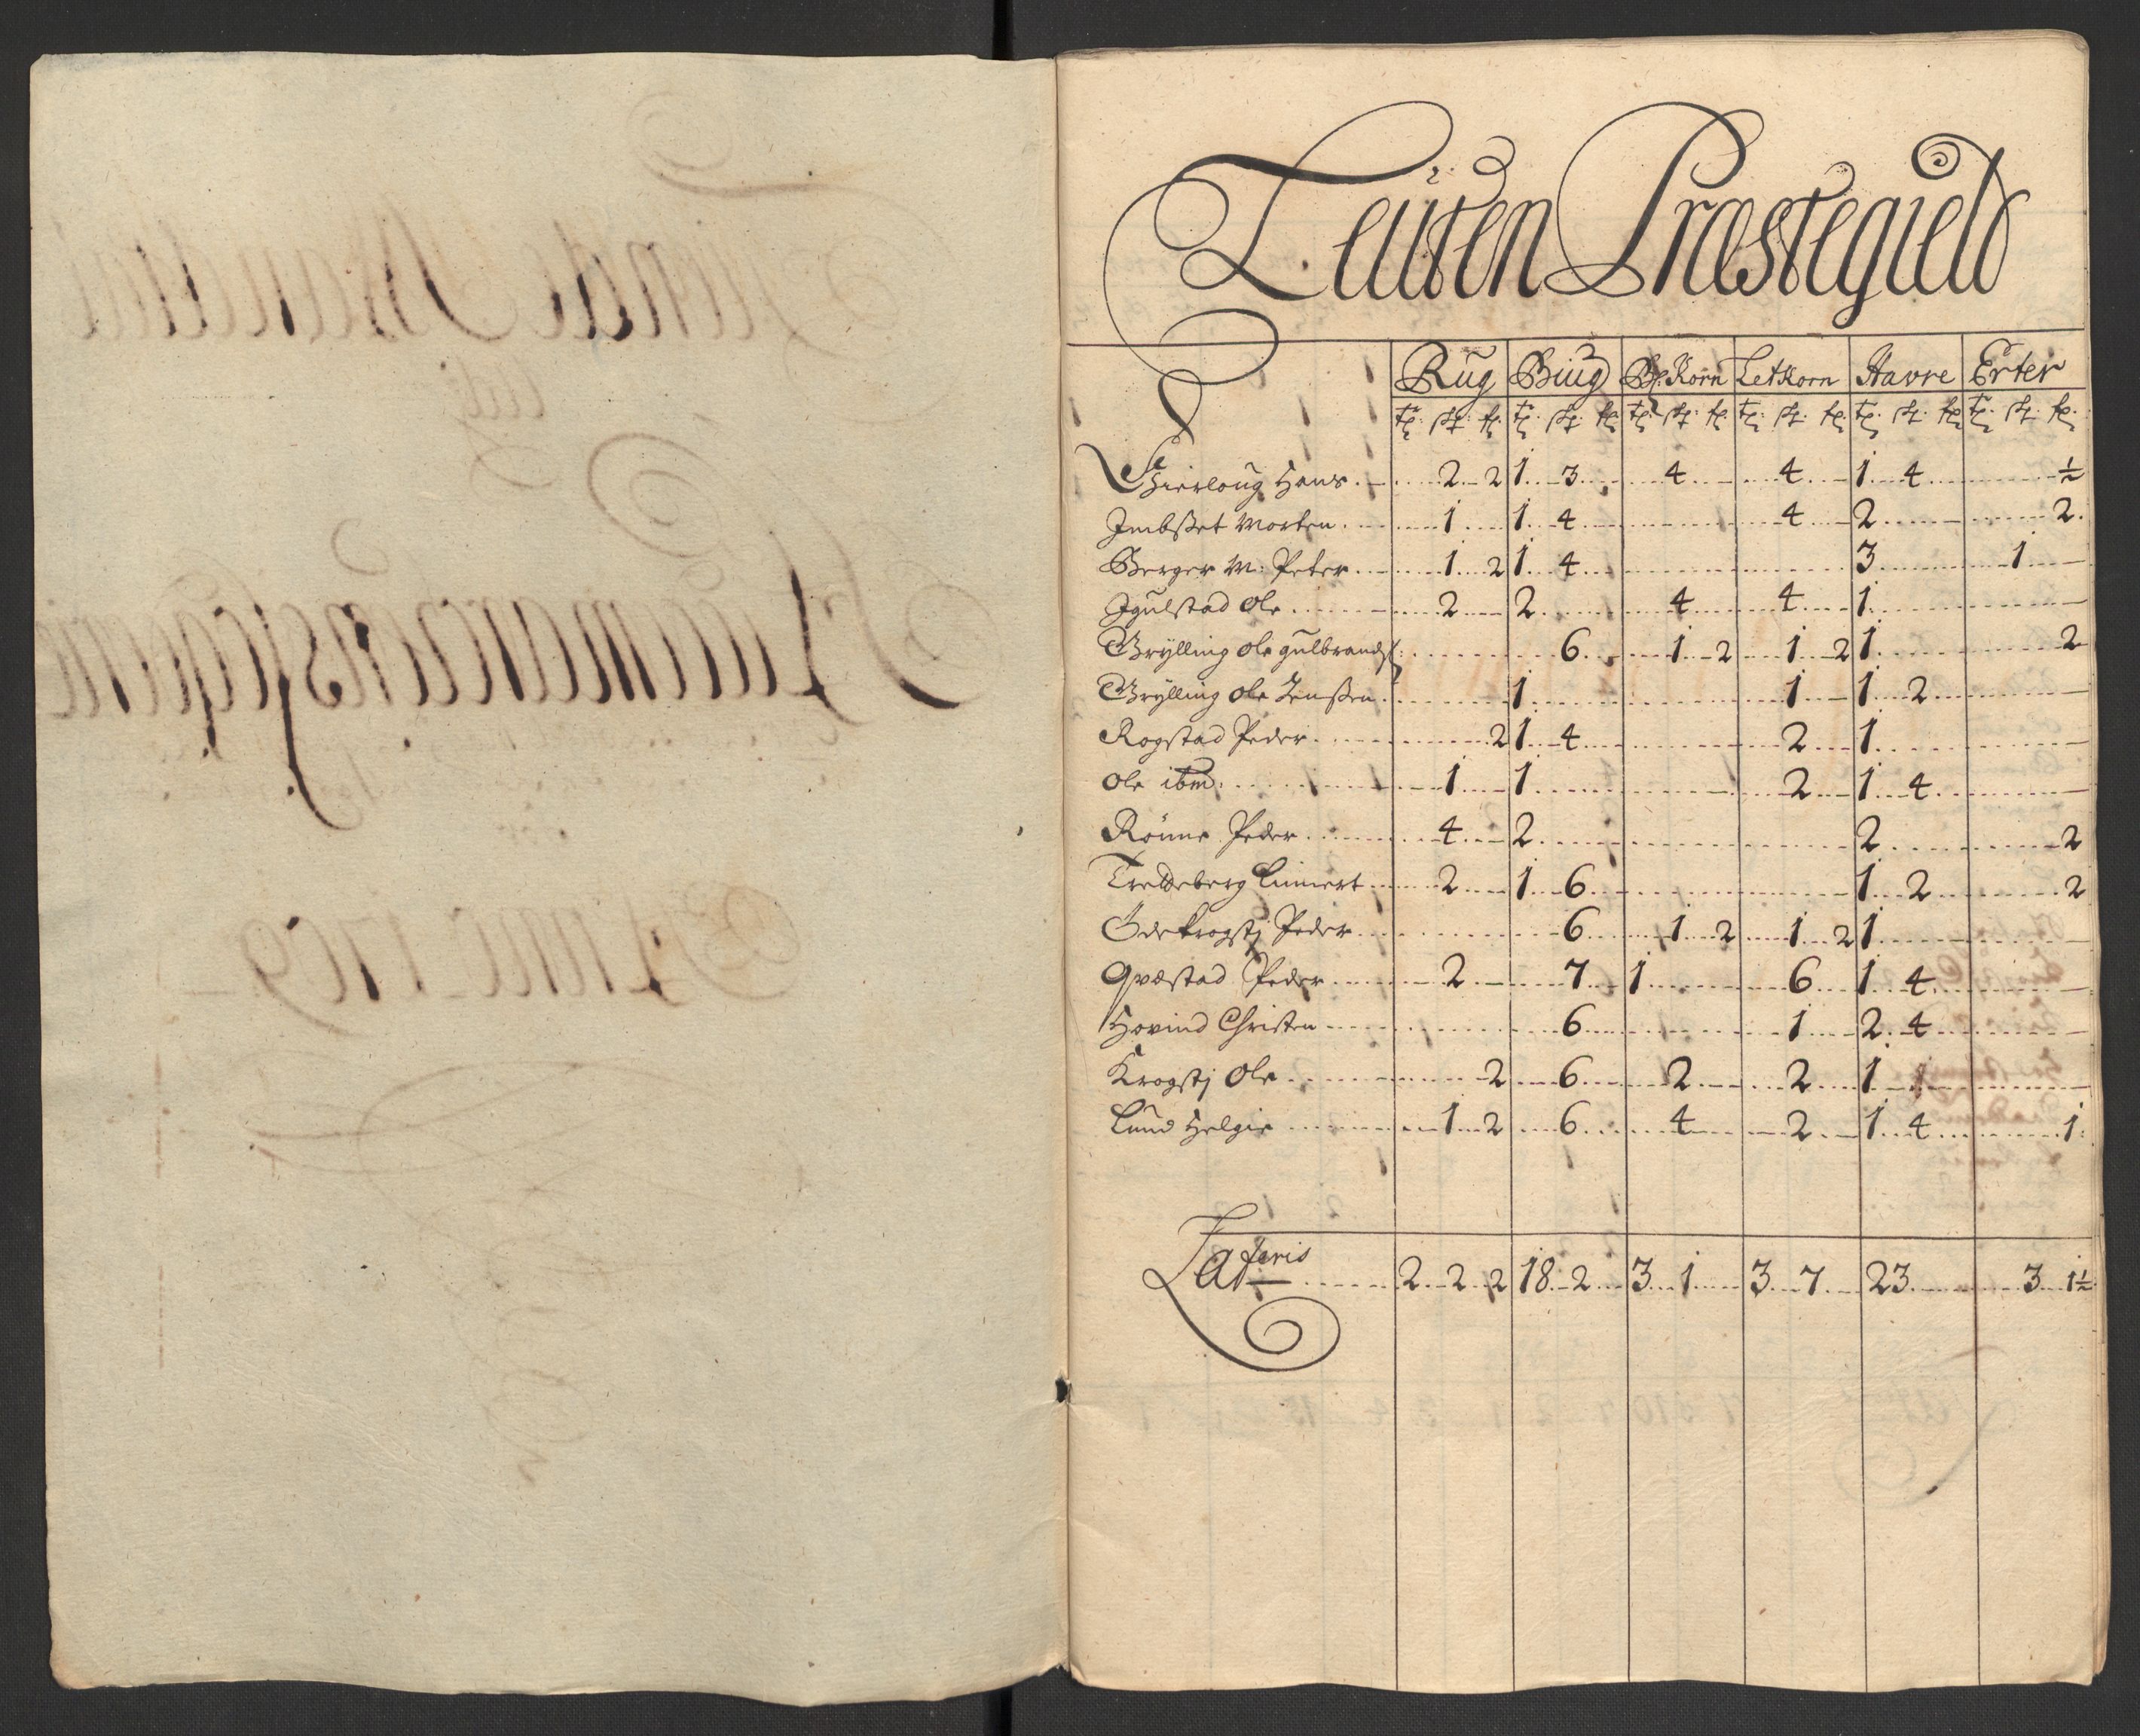 Leuten Præstegield
Rug Biug Bl. Korn Letkorn Havre Erter
tr: sk: fr: tr: sk: fr: tr: sk: fr: tr: sk: fr: tr: sk: fr: tr: sk: fr:
Hans 2 2 1 3 4 4 1 4 ½
Imbset Morten 1 1 4 4 2 2
Berger M: Peter 1 2 1 4 3 1
Igulstad Ole 2 2 4 4 1
Grylling Ole gulbrands: 6 1 2 1 2 1 2
Grylling Ole Jenssen 1 1 1 2
Rogstad Peder 2 1 4 2 1
Ole ibm: 1 1 2 1 4
Rønne Peder 4 2 2 2
Treldeberg Linnert 2 1 6 1 2 2
Ødekrogstj Peder 6 1 2 1 2 1
Qvæstad Peder 2 7 1 6 1 4
Hovind Christen 6 1 2 4
Krogstj Ole 2 6 2 2 1
Lund Helgie 1 2 6 4 2 1 4 1
Lateris 2 2 2 18 2 3 1 3 7 23 3 1½